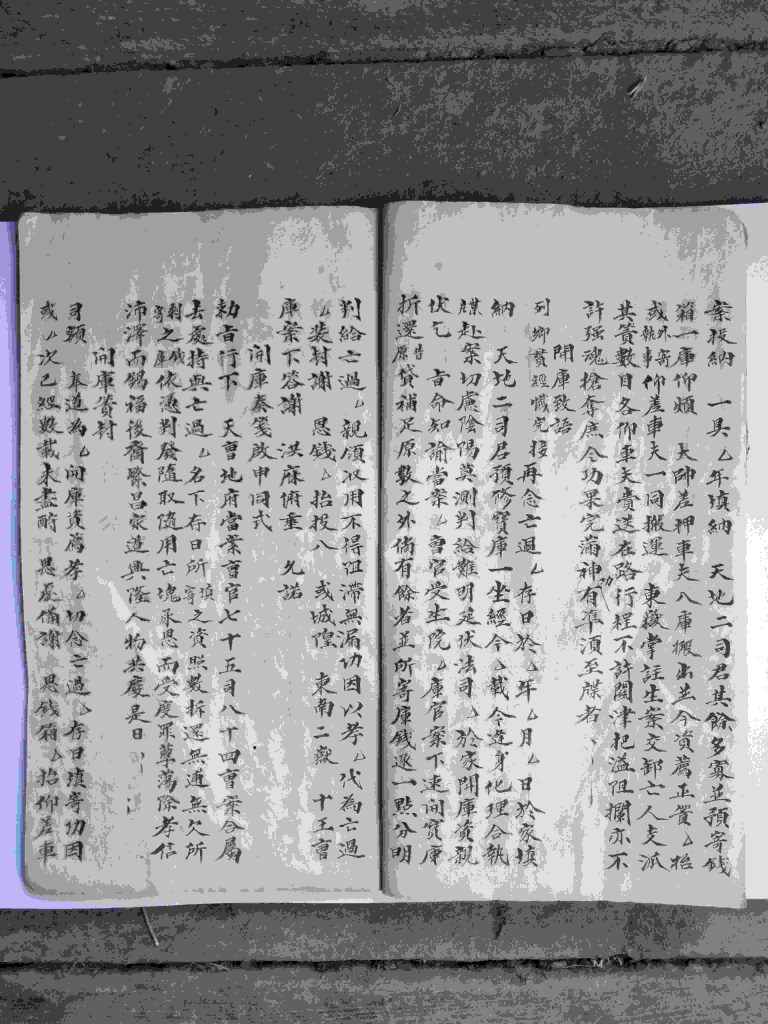 案投納　一具厶年填納　天地二司君其餘多寡並預寄錢
箱一庫仰煩　大帥差押車夫八庫搬出並今資薦正簀厶抬
或外寄執事仰差車夫一同搬運　東嶽掌註生案交卸亡人支派
其簀數目各仰車夫賫送在路行程不許関津把溢阻攔亦不
許强魂搶奪庶令功果完滿神有準須至牒者
開庫致語
列鄉貫經懺完接再念亡過厶存日於厶年厶月厶日於家填
納　天地二司君預修寶庫一坐經今厶載今進身化理合執
牒赴案切慮陰陽莫測判給難明延伏法司厶於家開庫資親
伏乞　旨命知諭當案厶曹官受生院厶庫官案下速開寶庫
折還原昔貸補足原數之外倘有餘者並所寄庫錢逐一點分明
判給亡過厶親領收用不得阻滯無漏功因以孝厶代為亡過
厶装封謝　恩錢厶抬投八　或城隍　東南二嶽　十王曹
庫案下答謝　洪庥俯垂　允諾
開庫奏箋啟申同式
勅旨行下　天曹地府當案曹官七十五司八十四曹案合屬
去處持與亡過厶名下存日所填寄之資照數拆還無逋無欠所
剩寄之錢庫依憑判發隨取隨用亡魂承恩而受度罪孽蕩除孝信
沛澤而錫福後裔繁昌家道興隆人物共慶是日
開庫簀封
司額　奉道為厶開庫資薦孝厶切念亡過厶存日填寄功因
或厶次已經數載未盡酧　恩兹備謝　恩錢箱厶抬仰差車